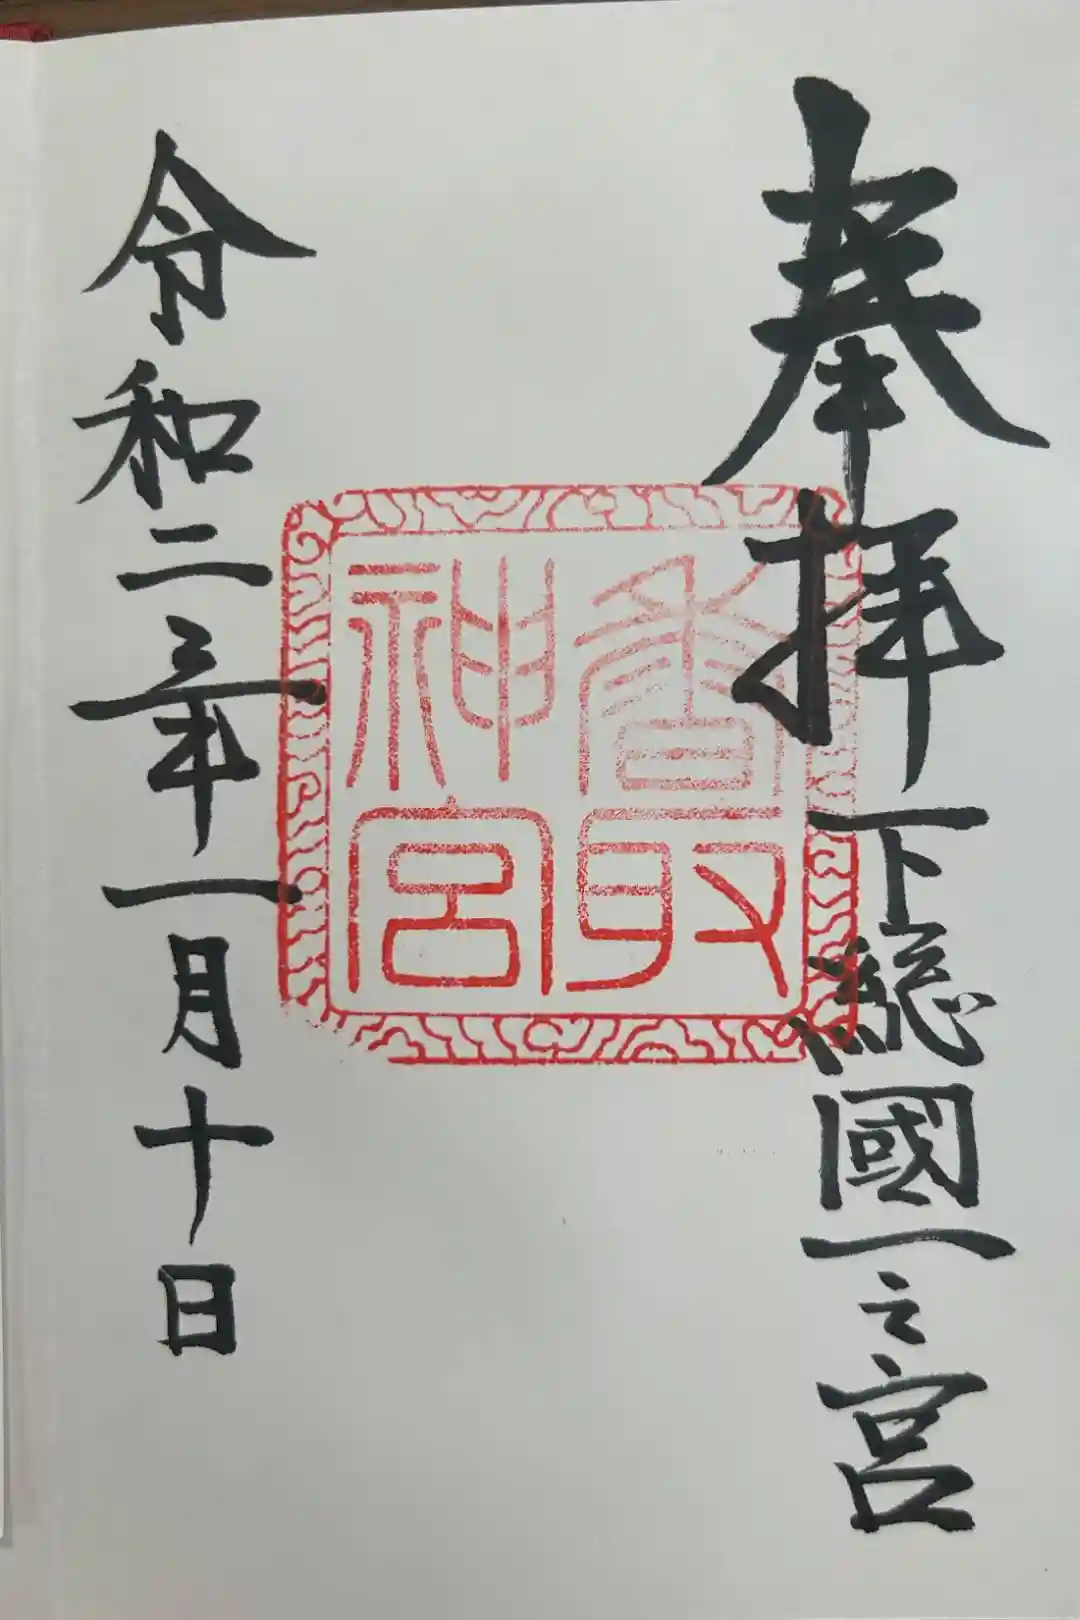 奉拝 下總國一之宮
香取
神宮
令和二年一月十日